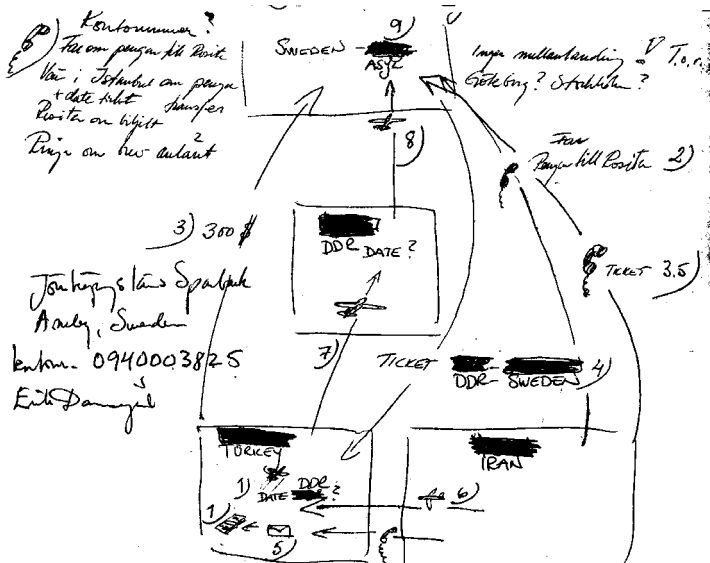 Kontonummer?
Far om pengar till Rosita
i Istanbul om pengar
+ date ticket transfer
Rosita om biljett
Ringa om
9)
SWEDEN -
ASYL
Ingen mellanlanding T.o.r.
Göteborg? Stockholm?
8)
Far
Pengar till Rosita 2)
3) 300 $
DDR DATE?
TICKET 3.5)
Jönköpings läns Sparbank
Aneby, Sweden
kontonr. 0940003825
7)
TICKET
DDR - SWEDEN 4)
TURKEY
IRAN
1) DDR
DATE ?
6)
1)
5